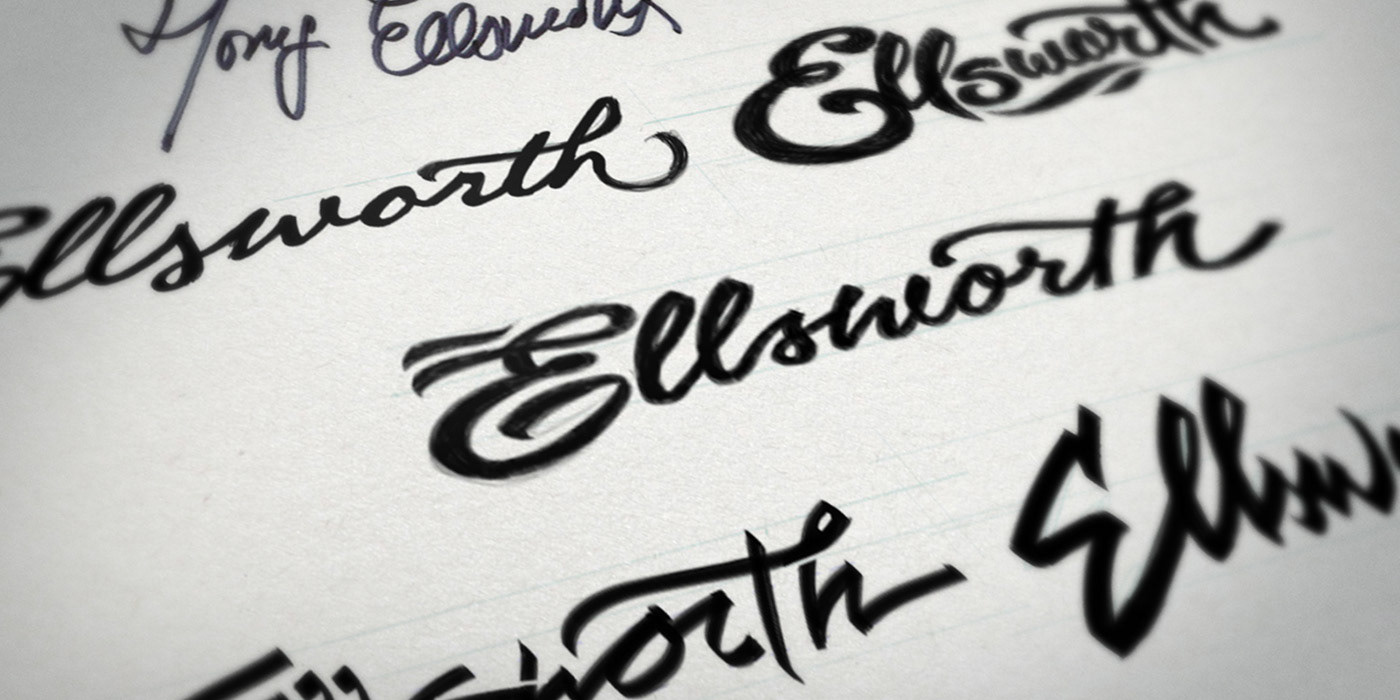 Tony Ellsworth
Ellsworth
Ellsworth
Ellsworth
Ellsworth
Ellsw